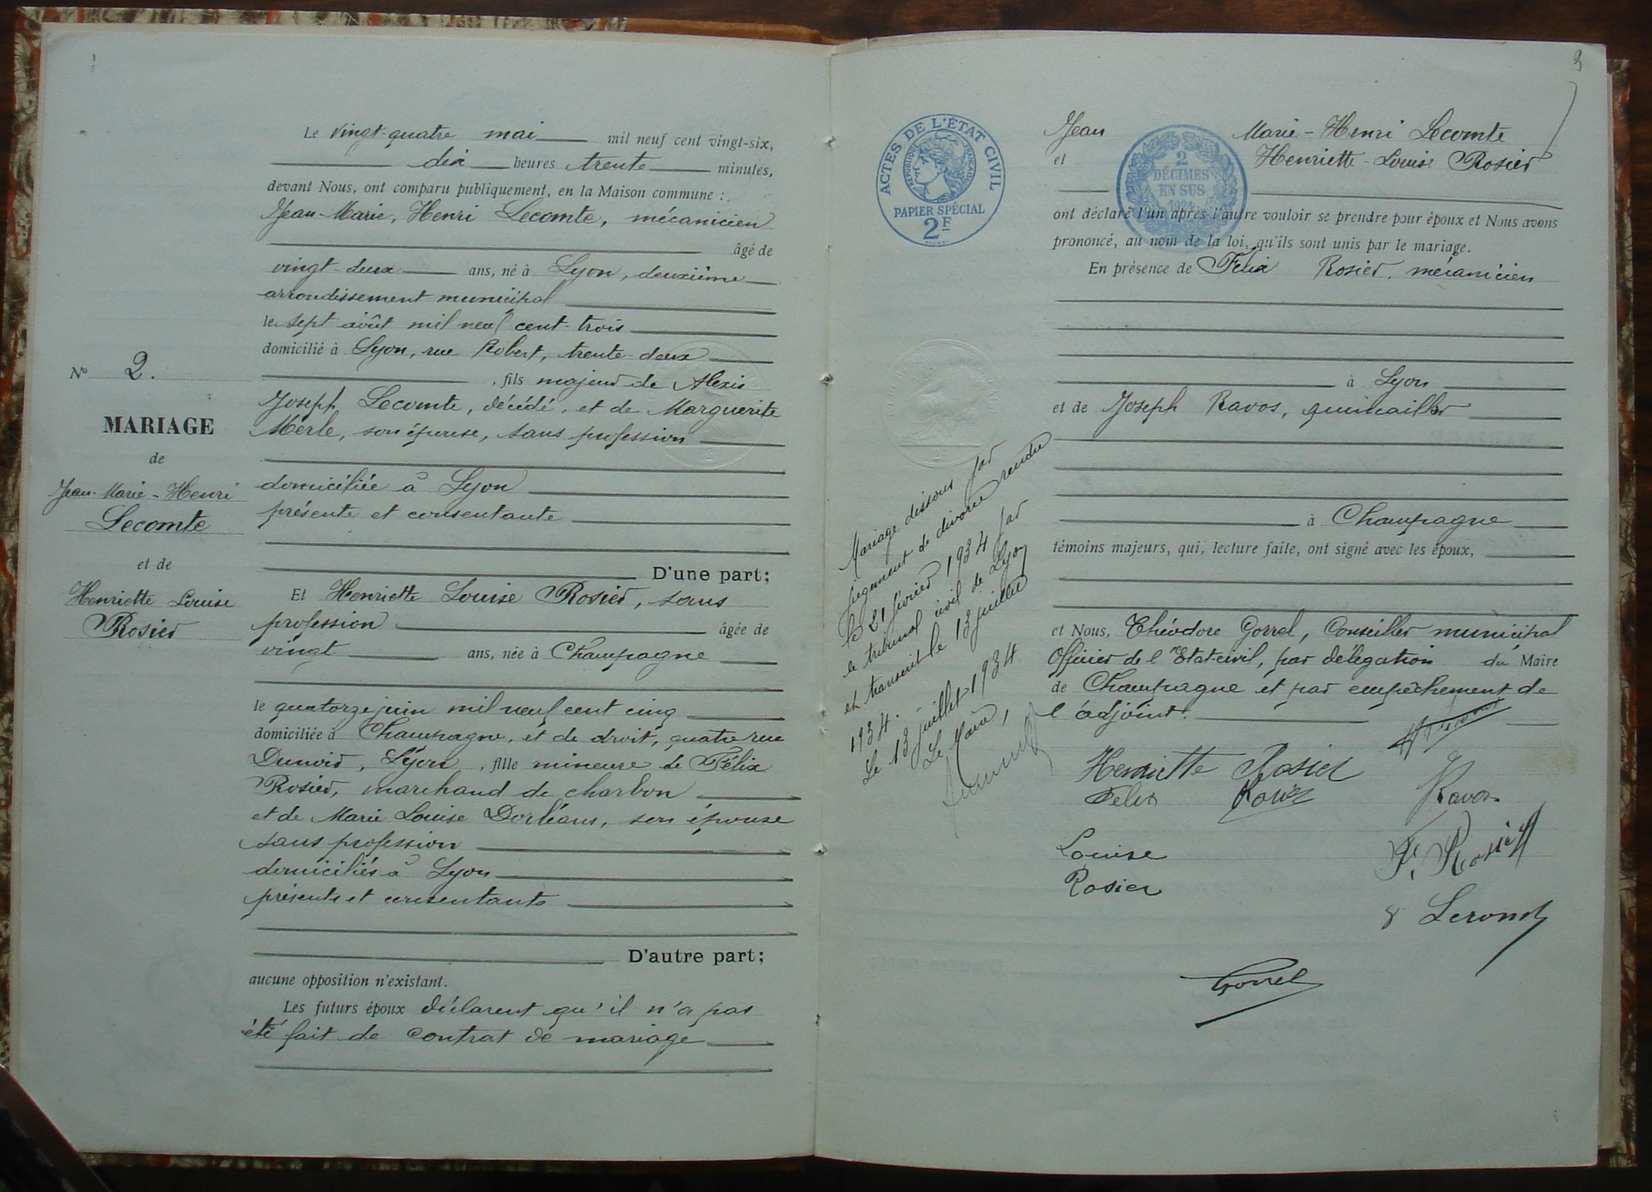 Le vingt-quatre mai mil neuf cent vingt-six,
dix heures trente minutes,
devant Nous, ont comparu publiquement, en la Maison commune :
Jean-Marie, Henri Lecomte, mécanicien
âgé de
vingt-deux ans, né à Lyon, deuxième
arrondissement municipal
le sept août mil neuf cent-trois
domicilié à Lyon, rue Robert, trente-deux
, fils majeur de Alexis
Joseph Lecomte, décédé, et de Marguerite
Merle, son épouse, sans profession
domiciliée à Lyon
présente et consentante
D'une part;
Et Henriette Louise Rosier, sans
profession âgée de
vingt ans, née à Champagne
le quatorze juin mil neuf cent cinq
domiciliée à Champagne, et de droit, quatre rue
Dunoir, Lyon, fille mineure de Félix
Rosier, marchand de charbon
et de Marie Louise Dorléans, son épouse
sans profession
domiciliés à Lyon
présents et consentants
D'autre part;
aucune opposition n'existant.
Les futurs époux déclarent qu'il n'a pas
été fait de contrat de mariage
N° 2.
MARIAGE
de
Jean-Marie-Henri
Lecomte
et de
Henriette Louise
Rosier
ACTES DE L'ÉTAT CIVIL
PAPIER SPÉCIAL
2F
2
DÉCIMES
EN SUS
Jean Marie-Henri Lecomte
et Henriette-Louise Rosier
ont déclaré l'un après l'autre vouloir se prendre pour époux et Nous avons
prononcé, au nom de la loi, qu'ils sont unis par le mariage.
En présence de Félix Rosier, mécanicien
à Lyon
et de Joseph Ravos, quincailler
à Champagne
témoins majeurs, qui, lecture faite, ont signé avec les époux,
et Nous, Théodore Gorrel, Conseiller municipal
Officier de l'Etat-civil, par délégation du Maire
de Champagne et par empêchement de
l'adjoint.
Mariage dissous par
jugement de divorce rendu
le 21 février 1934 par
le tribunal civil de Lyon
et transcrit le 13 juillet
1934.
Le 13 juillet 1934
Le Maire,
Henriette Rosier
Félix
Ravos
Louise
Rosier
F. Rosier
Gorrel